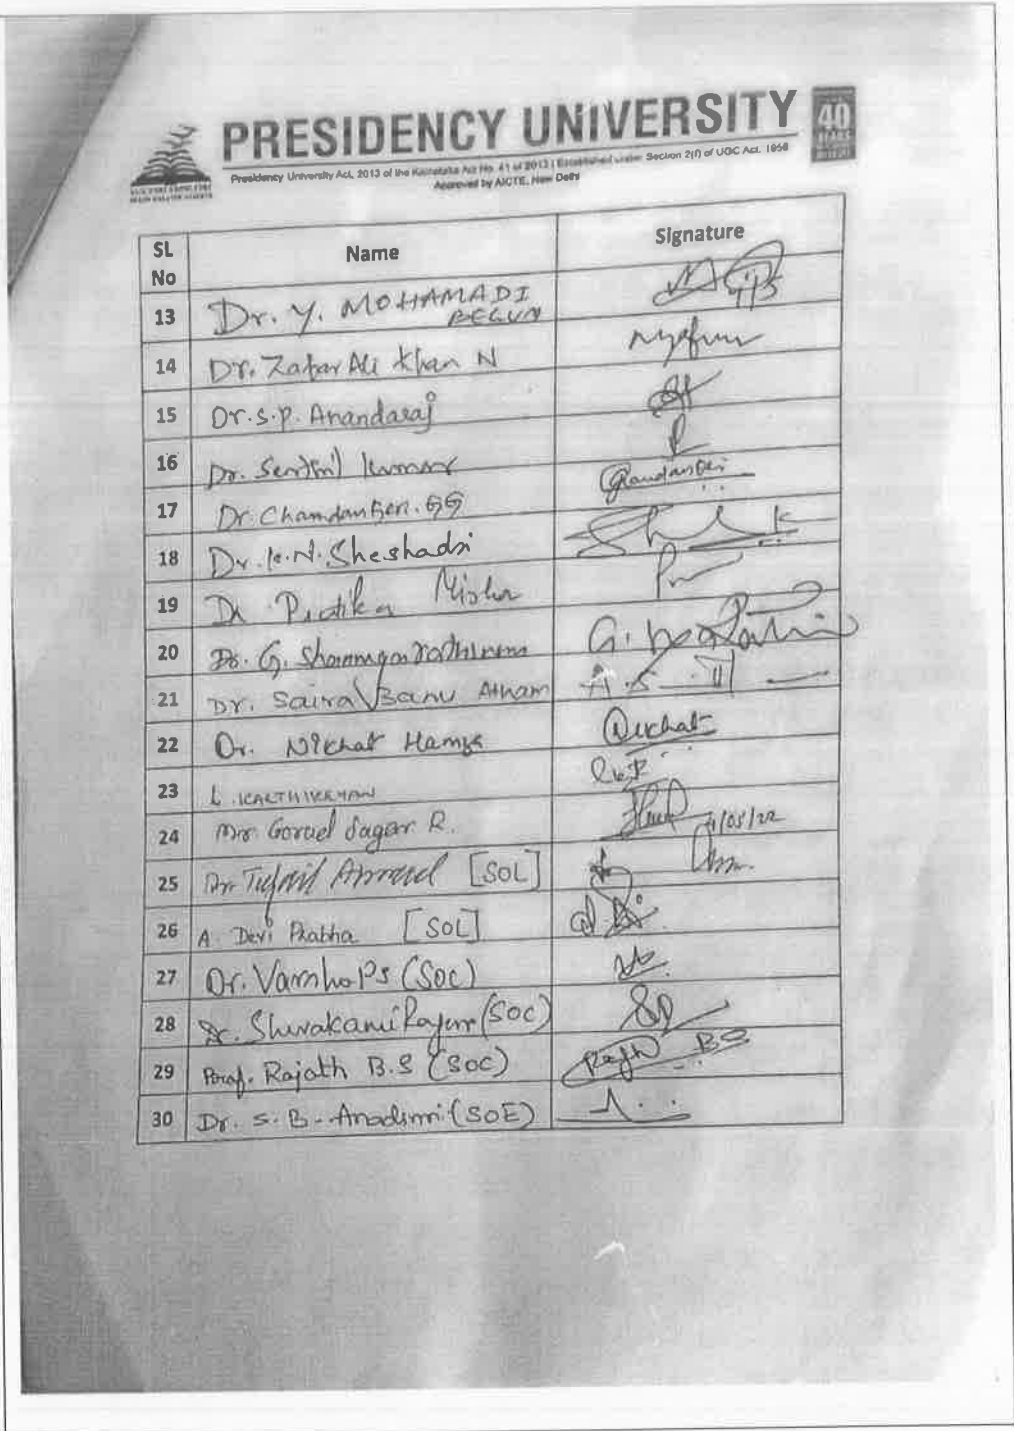 PRESIDENCY UNIVERSITY
40
YEARS
Presidency University Act, 2013 of the Karnataka Act No. 41 of 2013 | Established under Section 2(f) of UGC Act, 1956
Approved by AICTE, New Delhi
SL No Name Signature
13 Dr. Y. MOHAMADI
BEGUM
14 Dr. Zafar Ali Khan N
15 Dr. S.P. Anandaraj
16 Dr. Senthil Kumar
17 Dr. Chandan
18 Dr. K.N. Sheshadri
19 Dr Pratika Mishra
20 Dr. G. Shanmugarathinam
21 Dr. Saira Banu Atham
22 Dr. Nikhat Hamza Nikhat
23 L. KARTHIKEYAN
24 Mr. Sagar R. 11/05/22
25 Dr. Tufail Ahmad [SOL]
26 A. Devi Prabha [SOL]
27 Dr. Varsha PS (SOC)
28 Dr. Shivakami Rajan (SOC)
29 Prof. Rajath B.S (SOC) B S
30 Dr. S. B. (SOE)